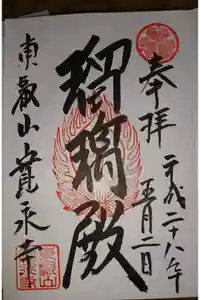 奉拝
平成二十八年
五月二日
瑠璃殿
東叡山寛永寺